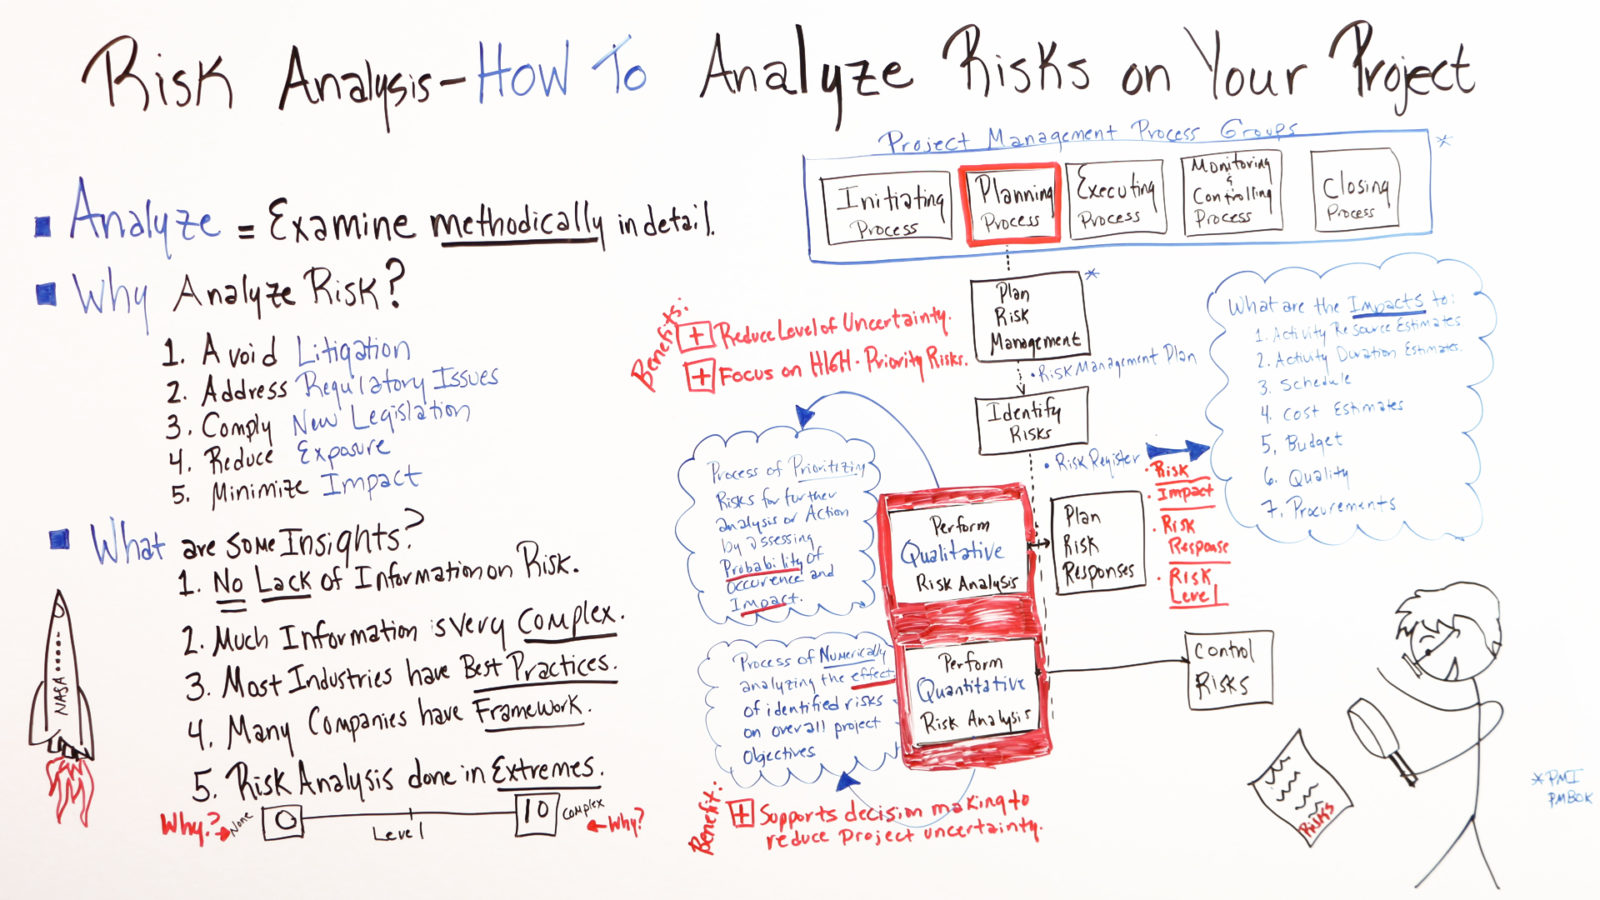 Risk Analysis - How To Analyze Risks on Your Project
■ Analyze = Examine methodically in detail.
■ Why Analyze Risk?
1. Avoid Litigation
2. Address Regulatory Issues
3. Comply New Legislation
4. Reduce Exposure
5. Minimize Impact
■ What are some Insights?
1. No Lack of Information on Risk.
2. Much Information is very Complex.
3. Most Industries have Best Practices.
4. Many Companies have Framework.
5. Risk Analysis done in Extremes.
Why?
None
0
Level
10
Complex
Why?
NASA
Project Management Process Groups
*
Initiating
Process
Planning
Process
Executing
Process
Monitoring
&
Controlling
Process
Closing
Process
Plan
Risk
Management
*
• Risk Management Plan
Identify
Risks
• Risk Register
Benefits:
+ Reduce Level of Uncertainty.
+ Focus on HIGH-Priority Risks.
Process of Prioritizing
Risks for further
analysis or Action
by assessing
Probability of
occurence and
Impact.
Perform
Qualitative
Risk Analysis
Plan
Risk
Responses
• Risk
Impact
• Risk
Response
• Risk
Level
What are the Impacts to:
1. Activity Resource Estimates
2. Activity Duration Estimates.
3. Schedule
4. Cost Estimates
5. Budget
6. Quality
7. Procurements
Process of Numerically
analyzing the effect
of identified risks
on overall project
objectives
Perform
Quantitative
Risk Analysis
Control
Risks
Benefit:
+ Supports decision making to
reduce Project uncertainty.
Risks
* PMI
PMBOK